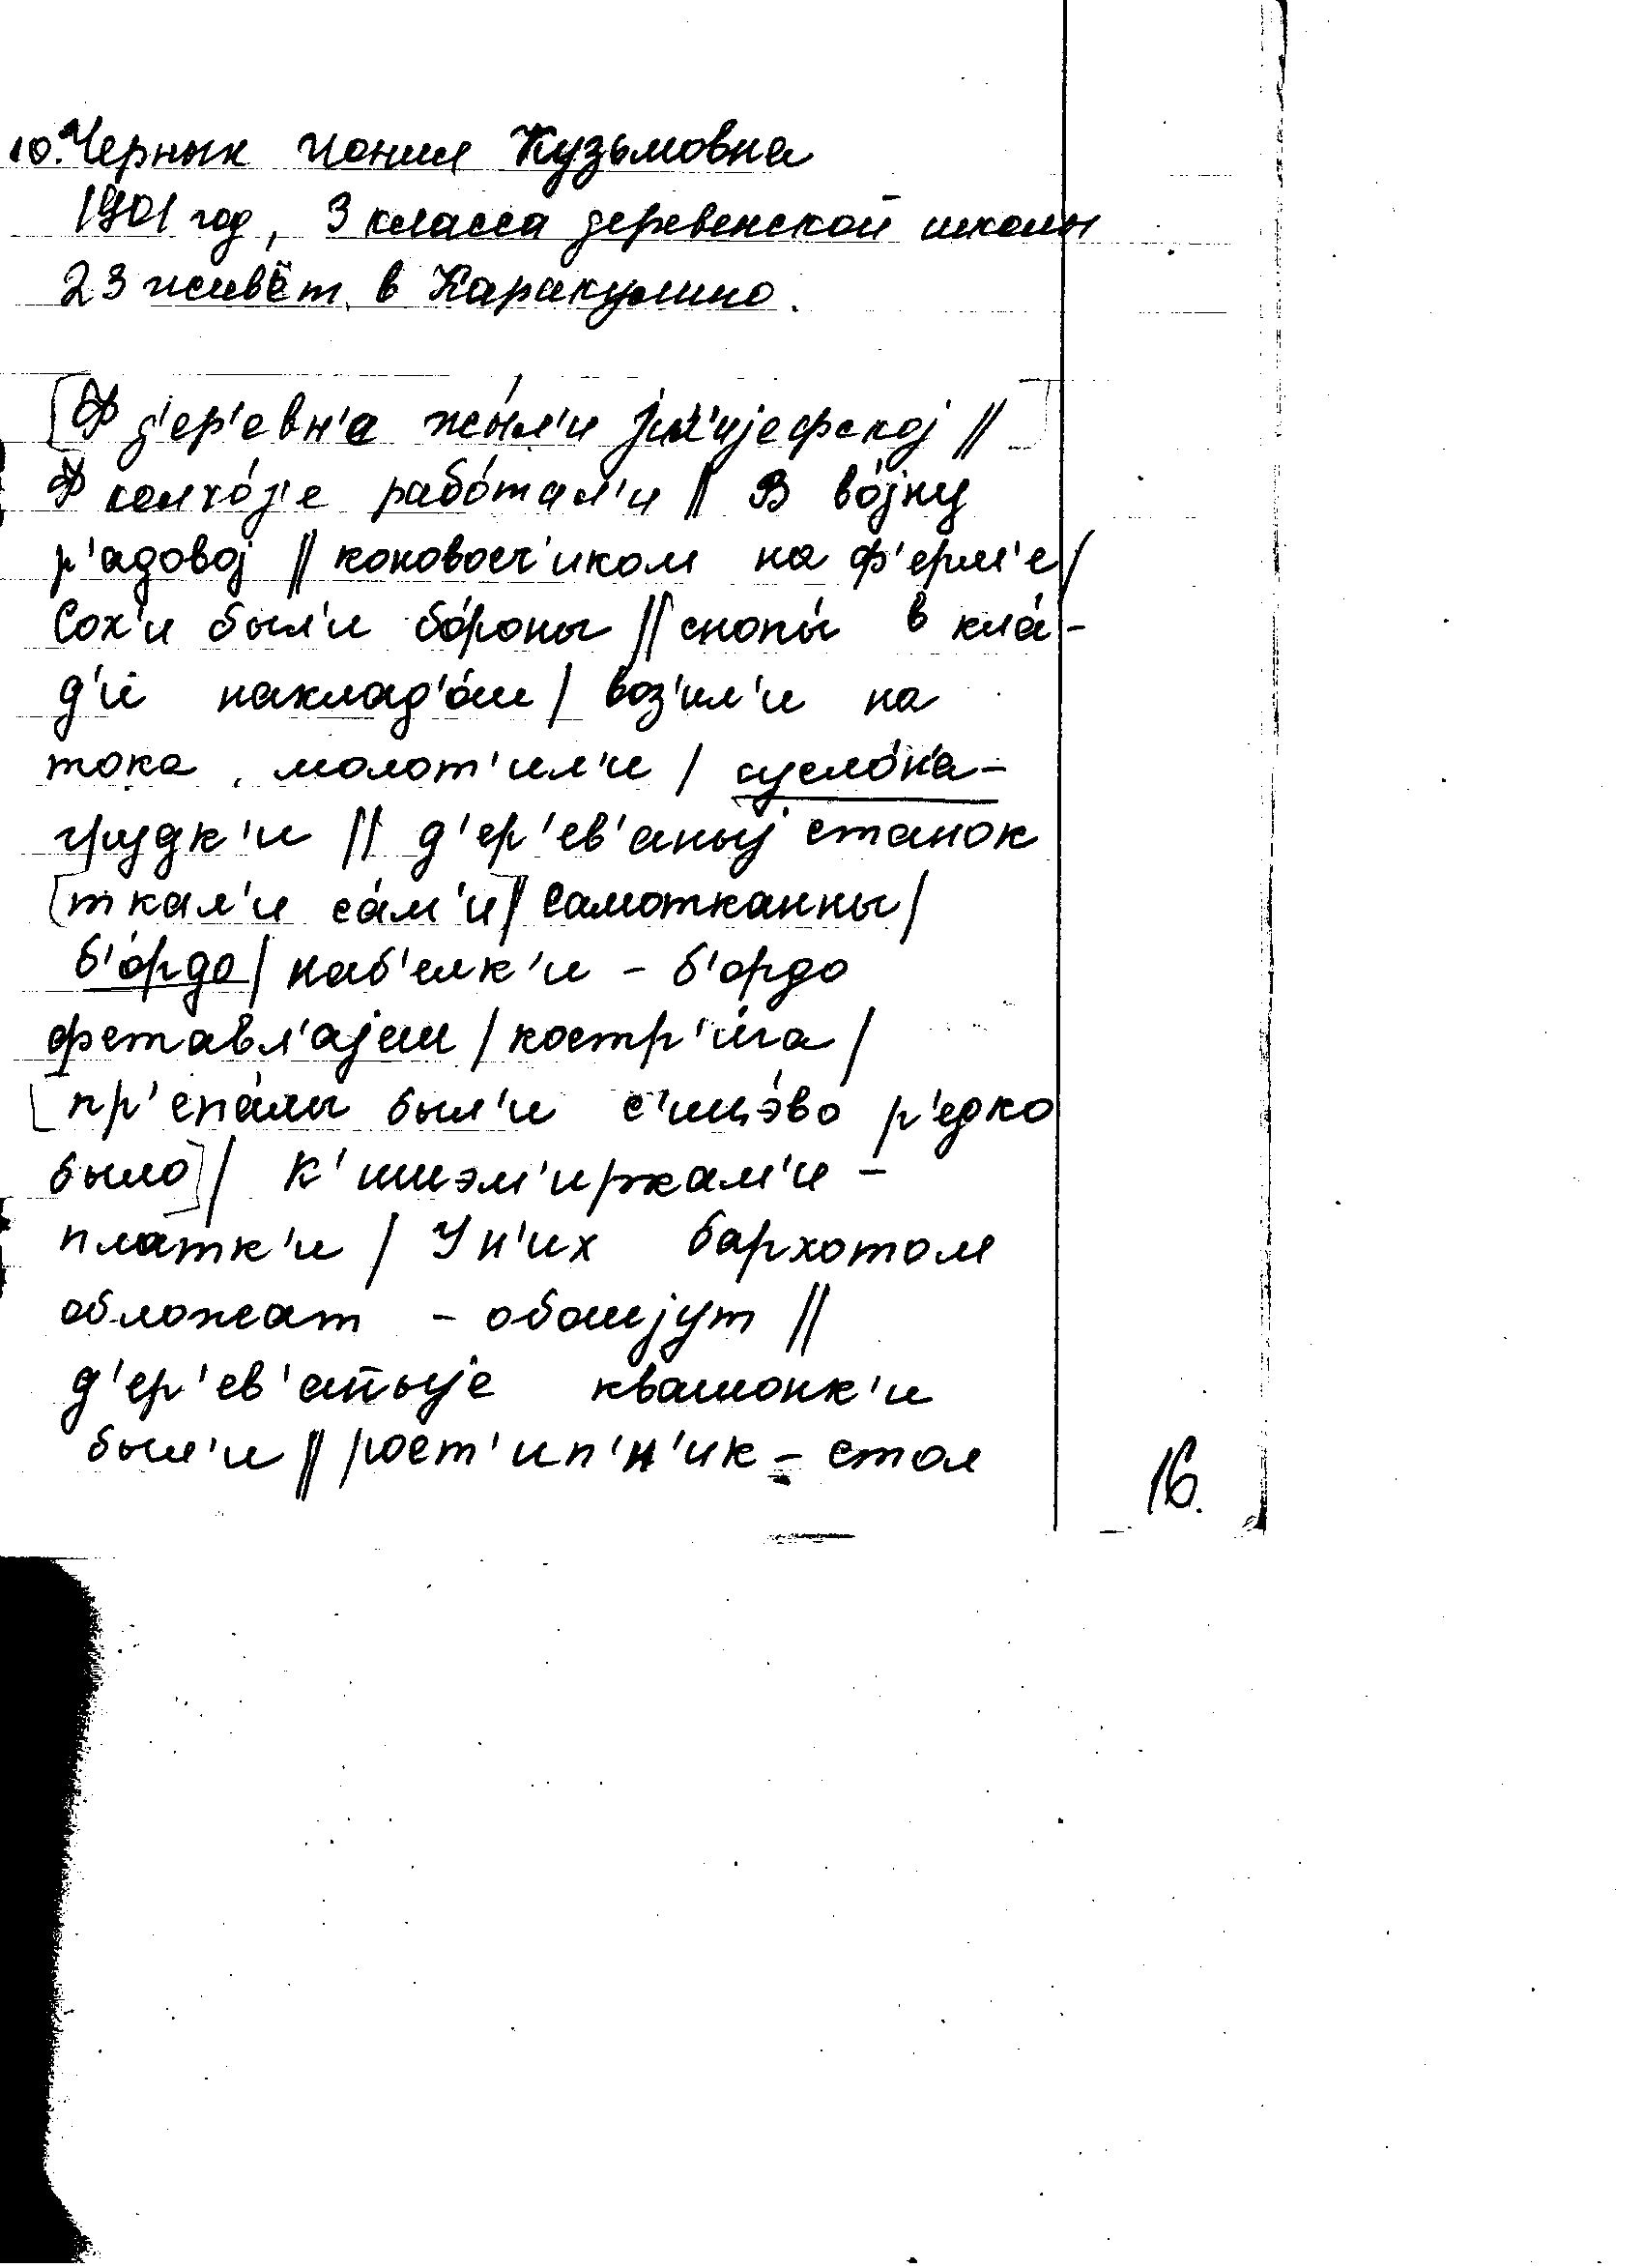 10. Черных Иония Кузьмовна
1901 год, 3 класса деревенской школы
23 живёт в Каракулино.
[Ф д'ер'евн'а жы́л'и jил'иjефскоj //]
Ф колхо́з'е рабо́тал'и // В во́jну
р'адовоj // коновосч'иком на ф'ерм'е/
Сох'и был'и бо́роны // снопы́ в кла́-
д'и накладо́ш / воз'ил'и на
тока, молот'ил'и / сусло́на-
грудк'и // д'ер'ев'аныj станок
[ткал'и са́м'и] // самотканны /
б'о́рдо / наб'елк'и - б'ордо
фставл'аjеш / костр'и́га /
[пр'спа́лы был'и с'ицэ́во р'едко
было] / К'ишэм'иркам'и -
платк'и / У н'их бархотом
обложат - обошjут //
д'ер'ев'аныjе квашонк'и
был'и // рост'ип'н'ик - стол
16.